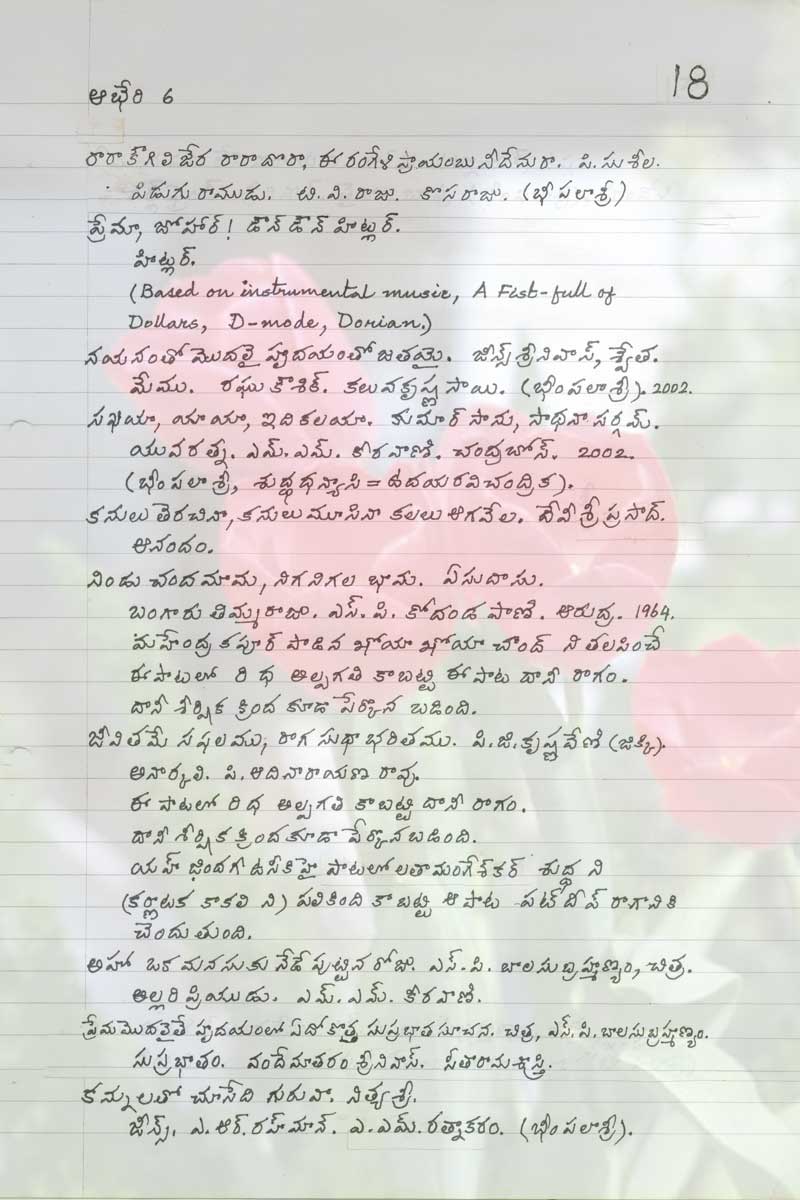 18
ఆభేరి 6
రారా కౌగిలి జేర రారా దొరా, ఈ రంగేళి ప్రాయంబు నీదేనురా. పి. సుశీల.
పిడుగు రాముడు. టి. వి. రాజు. కొసరాజు. (భీంపలాశ్రీ)
ప్రేమా, జోహార్! డౌన్ డౌన్ హిట్లర్.
హిట్లర్.
(Based on instrumental music, A Fist-full of
Dollars, D-mode, Dorian.)
నయనంతో మొదలై హృదయంతో జతయై. జీన్స్ శ్రీనివాస్, శ్వేత.
మేము. రఘు కౌశిక్. కలువకృష్ణ సాయి. (భీంపలాశ్రీ). 2002.
సఖియా, యాయా, ఇది కలయా. కుమార్ సాను, సాధనా సర్గమ్.
యువరత్న. ఎమ్. ఎమ్. కీరవాణి. చంద్రబోస్. 2002.
(భీంపలాశ్రీ, శుద్ధధన్యాసి = ఉదయరవిచంద్రిక).
కనులు తెరచినా, కనులు మూసినా కలలు ఆగవేల. దేవీ శ్రీ ప్రసాద్.
ఆనందం.
నిండు చందమామ, నిగనిగల భామ. ఏసుదాసు.
బంగారు తిమ్మరాజు. ఎస్. పి. కోదండ పాణి. ఆరుద్ర. 1964.
మహేంద్ర కపూర్ పాడిన ఖోయా ఖోయా చాంద్ ని తలపించే
ఈ పాటలో రి ధ అల్పగతి కాబట్టి ఈ పాట దానీ రాగం.
దానీ శీర్షిక క్రింద కూడా పేర్కొన బడింది.
జీవితమే సఫలము, రాగ సుధా భరితము. పి. జి. కృష్ణవేణి (జిక్కి).
అనార్కలి. పి. ఆదినారాయణ రావు.
ఈ పాటలో రి ధ అల్పగతి కాబట్టి దానీ రాగం.
దానీ శీర్షిక క్రింద కూడా పేర్కొనబడింది.
యహ్ జిందగీ ఉసీకి హై పాటలో లతా మంగేశ్కర్ శుద్ధ ని
(కర్ణాటక కాకలి ని) పలికింది కాబట్టి ఆ పాట పట్ దీప్ రాగానికి
చెందుతుంది.
అహో ఒక మనసుకు నేడే పుట్టిన రోజు. ఎస్. పి. బాలసుబ్రహ్మణ్యం, చిత్ర.
అల్లరి ప్రియుడు. ఎమ్. ఎమ్. కీరవాణి.
ప్రేమ మొదలైతే హృదయంలో ఏదో కొత్త సుప్రభాత సూచన. చిత్ర, ఎస్. పి. బాలసుబ్రహ్మణ్యం.
సుప్రభాతం. వందేమాతరం శ్రీనివాస్. సీతారామశాస్త్రి.
కన్నులతో చూసేది గురువా. నిత్యశ్రీ.
జీన్స్. ఎ. ఆర్. రహ్మాన్. ఎ. ఎమ్. రత్నాకరం. (భీంపలాశ్రీ).